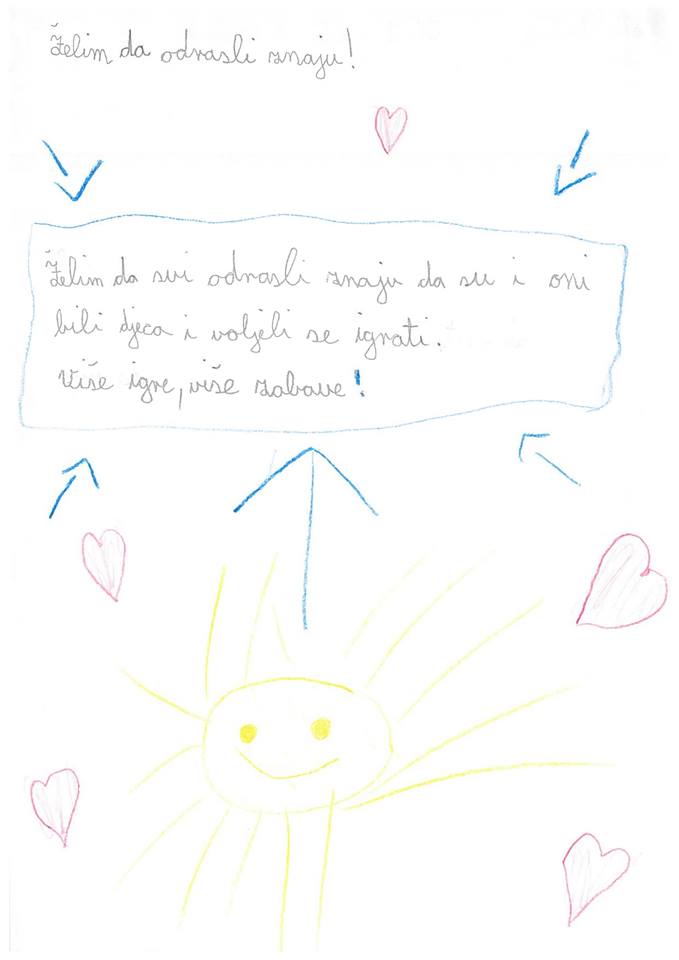 Želim da odrasli znaju!
Želim da svi odrasli znaju da su i oni
bili djeca i voljeli se igrati.
Više igre, više zabave!